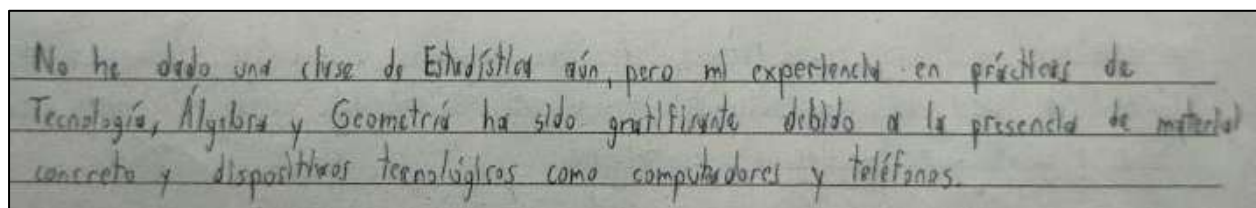 No he dado una clase de Estadística aún, pero mi experiencia en prácticas de
Tecnología, Álgebra y Geometría ha sido gratificante debido a la presencia de material
concreto y dispositivos tecnológicos como computadores y teléfonos.